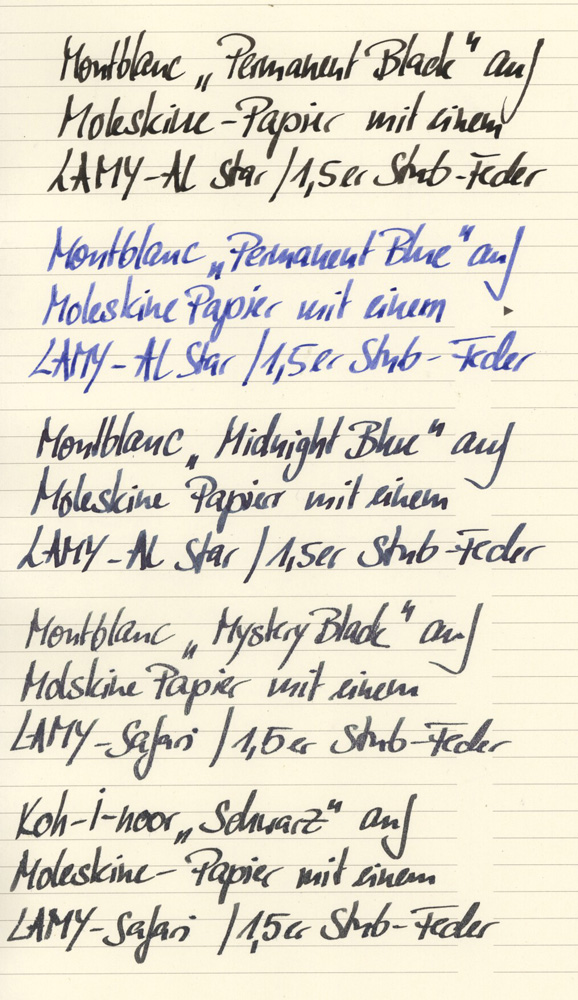 Montblanc „Permanent Black" auf
Moleskine-Papier mit einem
LAMY-AL Star / 1,5er Stub-Feder
Montblanc „Permanent Blue" auf
Moleskine Papier mit einem
LAMY-AL Star / 1,5er Stub-Feder
Montblanc „Midnight Blue" auf
Moleskine Papier mit einem
LAMY-AL Star / 1,5er Stub-Feder
Montblanc „Mystery Black" auf
Molskine Papier mit einem
LAMY-Safari / 1,5er Stub-Feder
Koh-i-noor „Schwarz" auf
Moleskine-Papier mit einem
LAMY-Safari / 1,5er Stub-Feder